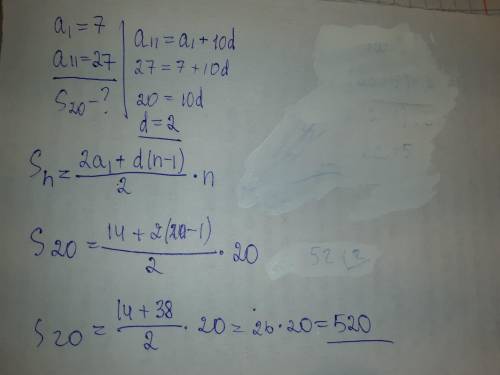 a₁ = 7
a₁₁ = 27
S₂₀ - ?
a₁₁ = a₁ + 10d
27 = 7 + 10d
20 = 10d
d = 2
Sₙ = (2a₁ + d(n-1))/2 · n
S₂₀ = (14 + 2(20-1))/2 · 20
S₂₀ = (14 + 38)/2 · 20 = 26 · 20 = 520